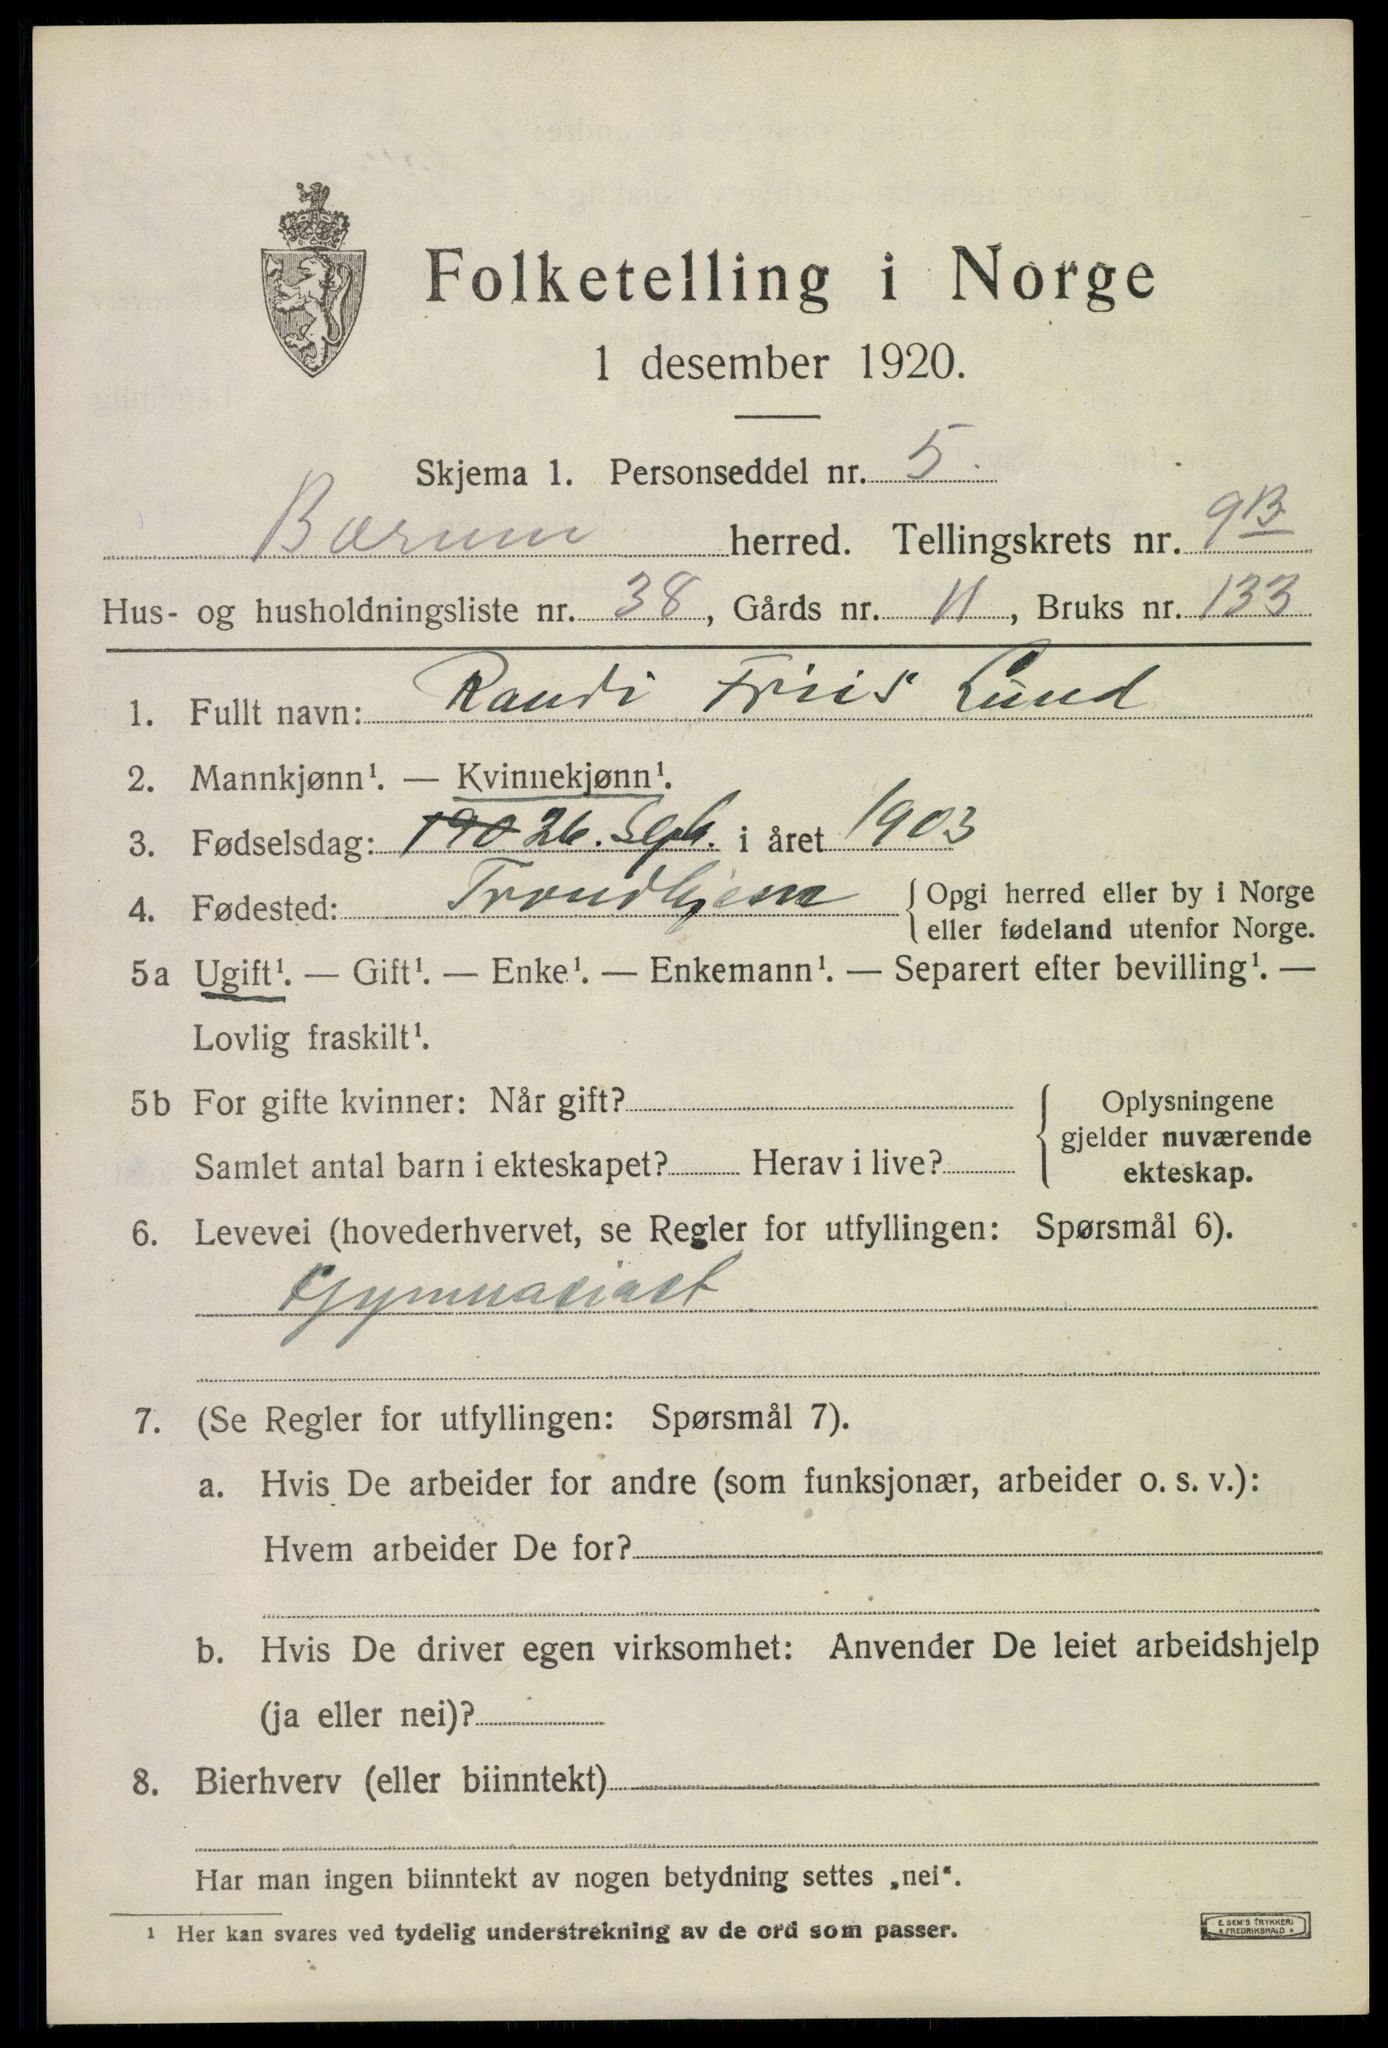 Folketelling i Norge
1 desember 1920.
Skjema 1. Personseddel nr. 5.
Bærum herred. Tellingskrets nr. 9B
Hus- og husholdningsliste nr. 38, Gårds nr. 11, Bruks nr. 133
1. Fullt navn: Randi Friis Lund
2. Mannkjønn¹. — Kvinnekjønn¹.
3. Fødselsdag: 190 26. Sept. i året 1903
4. Fødested: Trondhjem { Opgi herred eller by i Norge
eller fødeland utenfor Norge.
5a Ugift¹. — Gift¹. — Enke¹. — Enkemann¹. — Separert efter bevilling¹. —
Lovlig fraskilt¹.
5b For gifte kvinner: Når gift?
Samlet antal barn i ekteskapet? Herav i live?
{ Oplysningene
gjelder nuværende
ekteskap.
6. Levevei (hovederhvervet, se Regler for utfyllingen: Spørsmål 6).
Gymnasiast
7. (Se Regler for utfyllingen: Spørsmål 7).
a. Hvis De arbeider for andre (som funksjonær, arbeider o. s. v.):
Hvem arbeider De for?
b. Hvis De driver egen virksomhet: Anvender De leiet arbeidshjelp
(ja eller nei)?
8. Bierhverv (eller biinntekt)
Har man ingen biinntekt av nogen betydning settes „nei“.
¹ Her kan svares ved tydelig understrekning av de ord som passer.
E. SEM'S TRYKKERI
* FREDRIKSHALD *